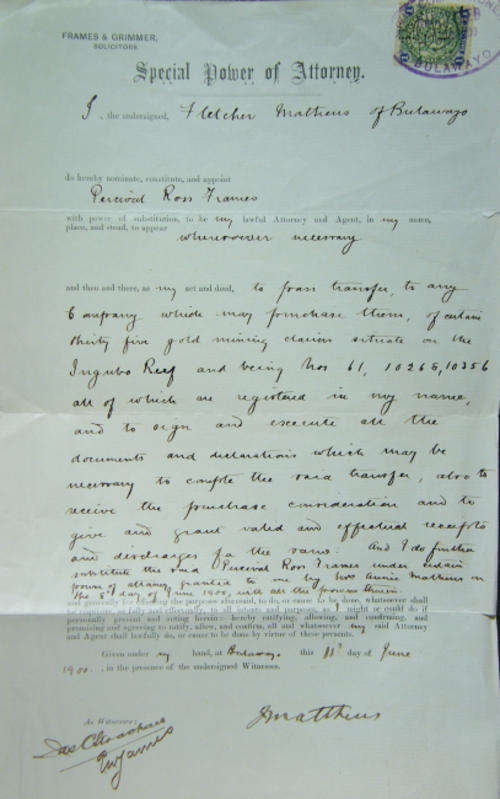 FRAMES & GRIMMER,
SOLICITORS.
BULAWAYO
Special Power of Attorney.
I, the undersigned, Fletcher Mathews of Bulawayo
do hereby nominate, constitute, and appoint
Percival Ross Frames
with power of substitution, to be my lawful Attorney and Agent, in my name,
place, and stead, to appear
wheresoever necessary
and then and there, as my act and deed, to pass transfer, to any
Company which may purchase them, of certain
thirty five gold mining claims situate on the
Ingubo Reef and being Nos 61, 10265, 10356
all of which are registered in my name,
and to sign and execute all the
documents and declarations which may be
necessary to complete the said transfer, also to
receive the purchase consideration and to
give and grant valid and effectual receipts
and discharges for the same. And I do further
substitute the said Percival Ross Frames under certain
power of attorney granted to me by Mrs Annie Mathews on
the 8th day of June 1900, with all the powers therein
and generally for effecting the purposes aforesaid, to do, or cause to be done, whatsoever shall
be requisite, as fully and effectually, to all intents and purposes, as I might or could do if
personally present and acting herein: hereby ratifying, allowing, and confirming, and
promising and agreeing to ratify, allow, and confirm, all and whatsoever my said Attorney
and Agent shall lawfully do, or cause to be done by virtue of these presents.
Given under my hand, at Bulawayo this 11th day of June
1900, in the presence of the undersigned Witnesses.
As Witnesses: